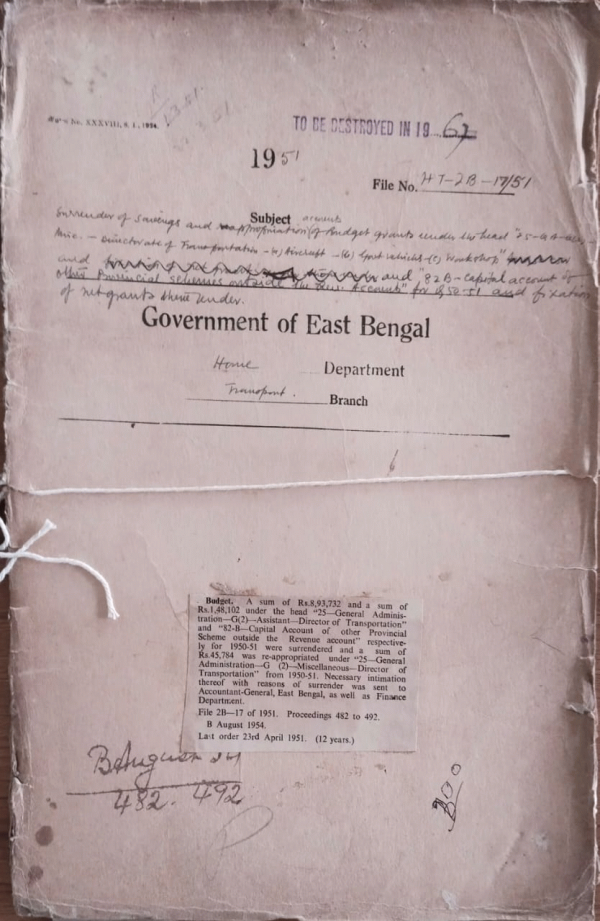 TO BE DESTROYED IN 19 67
No. XXXVIII, s. 1, 1954.
1951
File No. HT-2B-17/51
Subject
Surrender of savings and reappropriation of Budget grants under the head "25-G.A-
Misc. - Directorate of Transportation - Aircraft - (b) Govt vehicle - (c) Workshop"
and and "82B-Capital account of
other Provincial schemes outside the Rev. Accounts" for 1950-51 and fixation
of net grants there under.
Government of East Bengal
Home Department
Transport. Branch
Budget. A sum of Rs.8,93,732 and a sum of
Rs.1,48,102 under the head "25—General Adminis-
tration—G(2)—Assistant—Director of Transportation"
and "82-B—Capital Account of other Provincial
Scheme outside the Revenue account" respective-
ly for 1950-51 were surrendered and a sum of
Rs.45,784 was re-appropriated under "25—General
Administration—G (2)—Miscellaneous—Director of
Transportation" from 1950-51. Necessary intimation
thereof with reasons of surrender was sent to
Accountant-General, East Bengal, as well as Finance
Department.
File 2B—17 of 1951. Proceedings 482 to 492.
B August 1954.
Last order 23rd April 1951. (12 years.)
B August 54
482-492